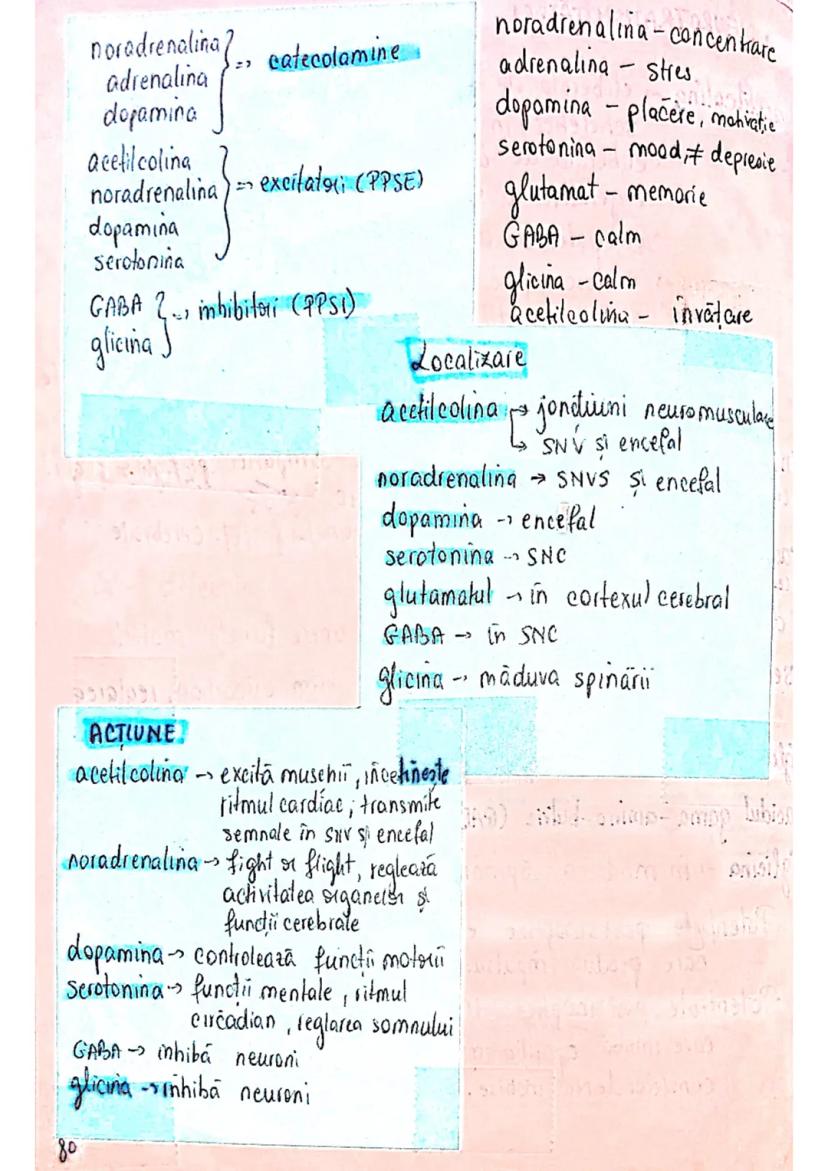 noradrenalina
adrenalina => catecolamine
dopamina
acetilcolina
noradrenalina => excitatori (PPSE)
dopamina
serotonina
GABA => inhibitori (PPSI)
glicina
noradrenalina - concentrare
adrenalina - stres
dopamina - plăcere, motivație
serotonina - mood, ≠ depresie
glutamat - memorie
GABA - calm
glicina - calm
acetilcolina - învățare
Localizare
acetilcolina → joncțiuni neuromusculare
↳ SNV și encefal
noradrenalina → SNVS și encefal
dopamina → encefal
serotonina → SNC
glutamatul → în cortexul cerebral
GABA → în SNC
glicina → măduva spinării
ACȚIUNE
acetilcolina → excită mușchii, încetinește
ritmul cardiac, transmite
semnale în SNV și encefal
noradrenalina → fight or flight, reglează
activitatea organelor și
funcții cerebrale
dopamina → controlează funcții motorii
serotonina → funcții mentale, ritmul
circadian, reglarea somnului
GABA → inhibă neuroni
glicina → inhibă neuroni
80